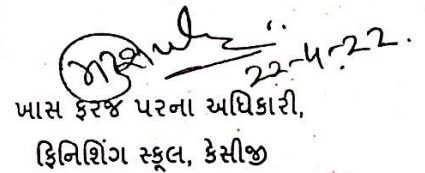 22-4-22.
ખાસ ફરજ પરના અધિકારી,
ફિનિશિંગ સ્કૂલ, કેસીજી